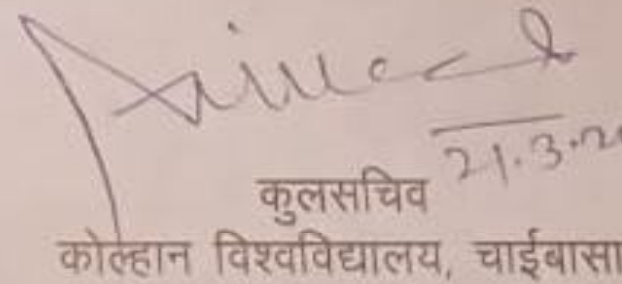 21.3.2
कुलसचिव
कोल्हान विश्वविद्यालय, चाईबासा